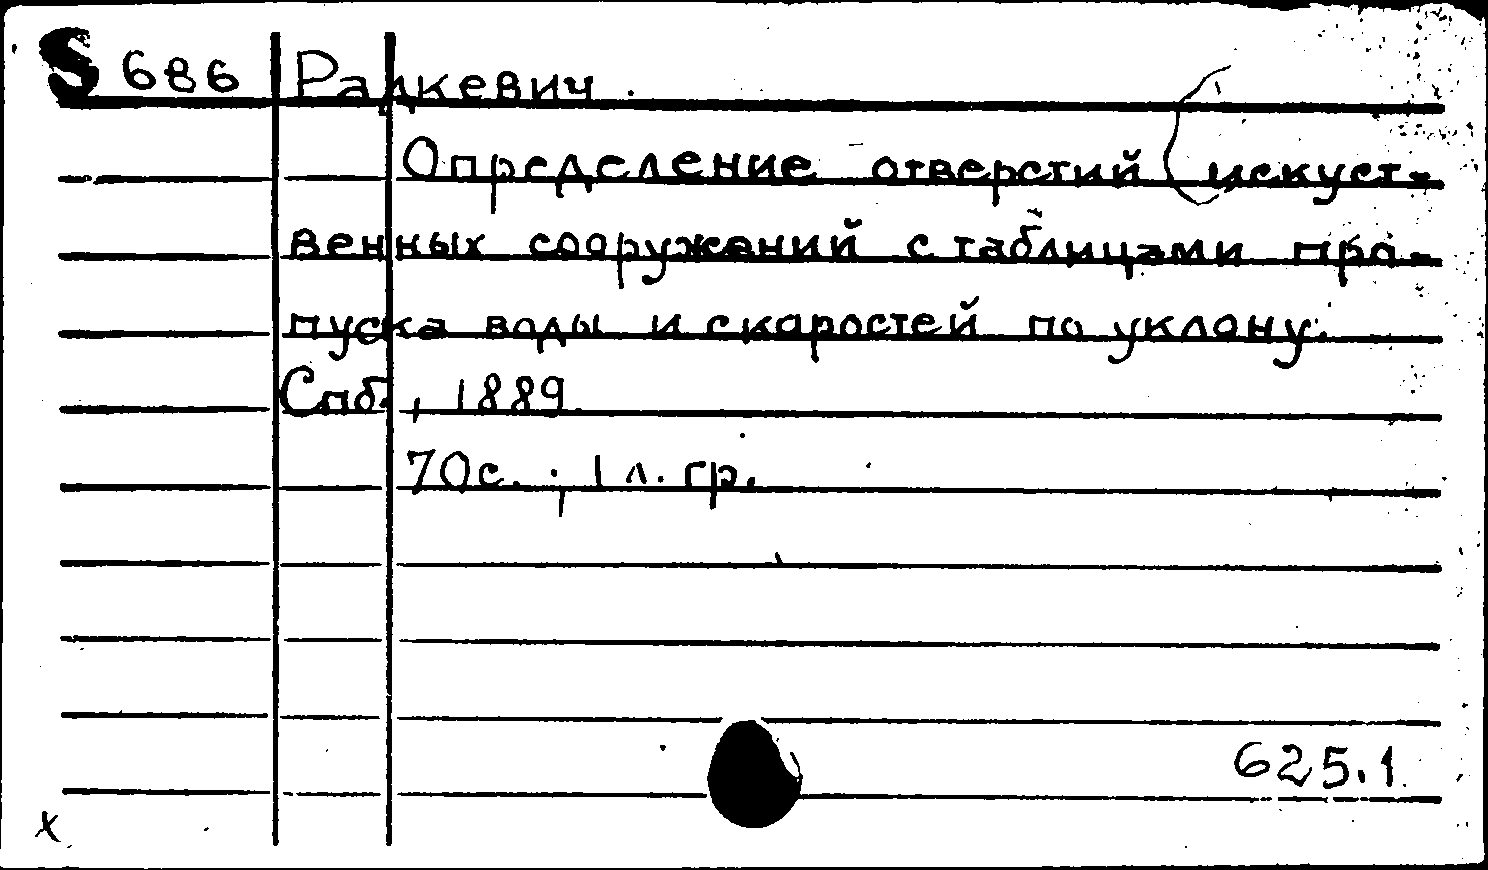 S 686 Радкевич.
Определение отверстий искуст-
венных сооружений с таблицами про-
пуска воды и скоростей по уклону.
Спб., 1889.
70с.; 1 л. гр.
625.1
x